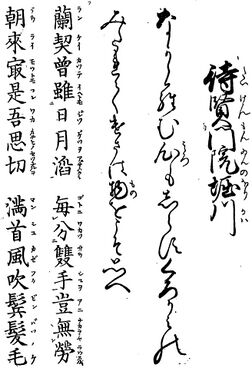 待賢門院堀川
なかゝらむ心もしらすくろかみの
みたれてけさは物をこそ思へ
蘭契曾雖日月滔　毎分雙手豈無勞
朝來冣是吾思切　滿首風吹鬂髮毛